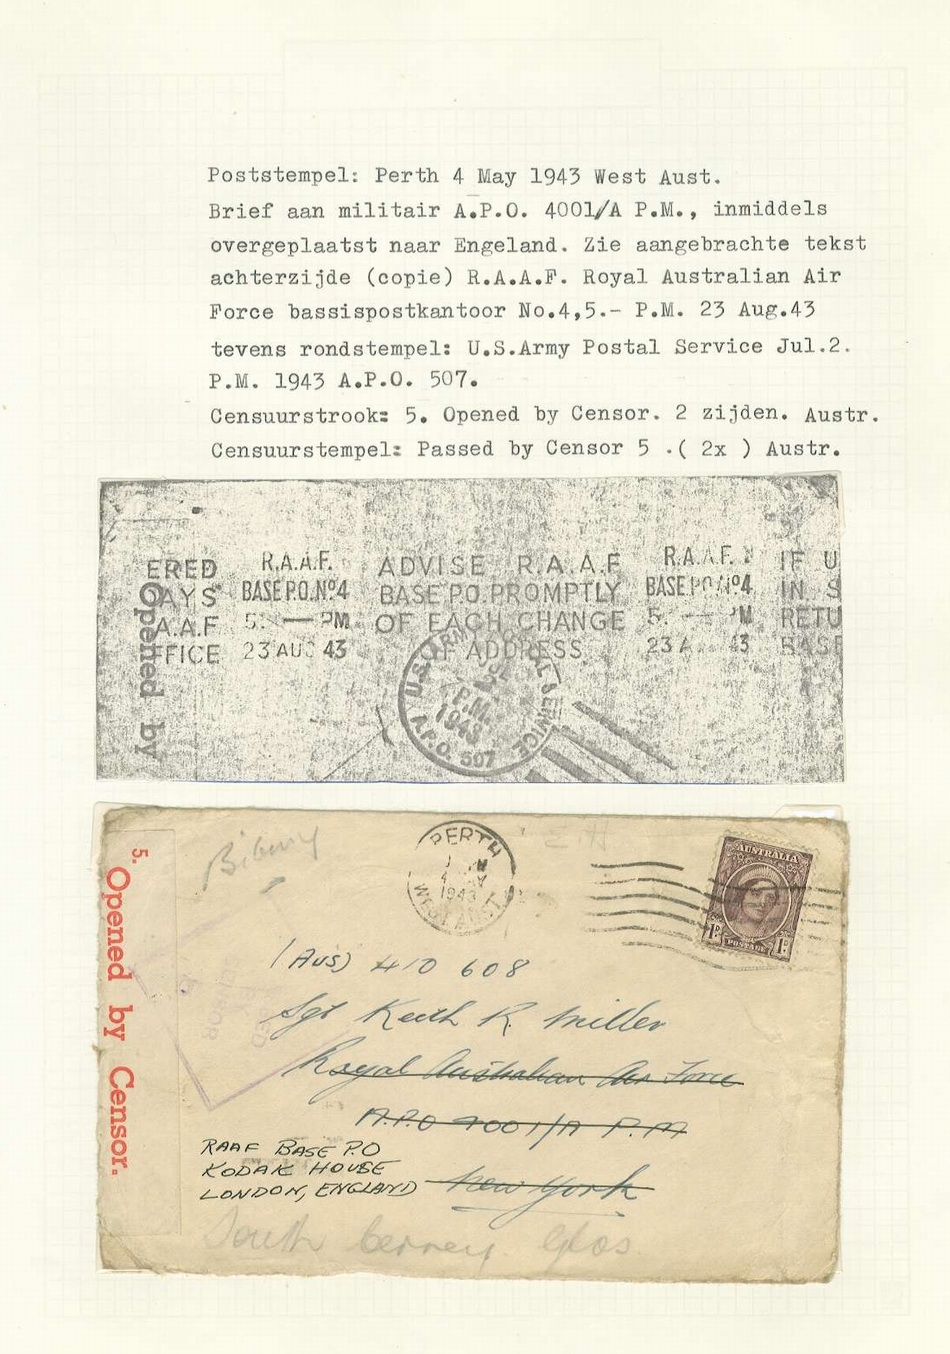 Poststempel: Perth 4 May 1943 West Aust.
Brief aan militair A.P.O. 4001/A P.M., inmiddels
overgeplaatst naar Engeland. Zie aangebrachte tekst
achterzijde (copie) R.A.A.F. Royal Australian Air
Force bassispostkantoor No.4,5.- P.M. 23 Aug.43
tevens rondstempel: U.S.Army Postal Service Jul.2.
P.M. 1943 A.P.O. 507.
Censuurstrook: 5. Opened by Censor. 2 zijden. Austr.
Censuurstempel: Passed by Censor 5 .( 2x ) Austr.
ERED
AYS
A.A.F
FFICE
Opened by
R.A.A.F.
BASE P.O. Nº4
5 — PM
23 AU 43
ADVISE R.A.A.F
BASE P.O. PROMPTLY
OF EACH CHANGE
OF ADDRESS
R.A.A.F.
BASE P.O. Nº4
5. — PM
23 A 43
IF U
IN S
RETU
BASE
U.S. ARMY POSTAL SERVICE
P.M.
1943
A.P.O. 507
5. Opened by Censor.
Bibury
PERTH
4 MAY
1943
WEST AUST.
AUSTRALIA
1D. 1D.
POSTAGE
(Aus) 410 608
Sgt Keith R. Miller
Royal Australian Air Force
A.P.O 4001/A P.M
RAAF BASE P.O
KODAK HOUSE
LONDON, ENGLAND
New York
South Cerney. Glos